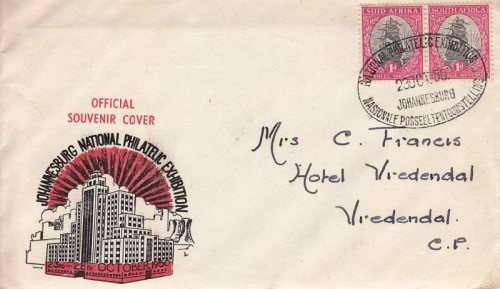 SUID-AFRIKA
SOUTH AFRICA
1D
1D
NATIONAL PHILATELIC EXHIBITION
23 OCT. 50
JOHANNESBURG
NASIONALE POSSEËLTENTOONSTELLING
OFFICIAL
SOUVENIR COVER
JOHANNESBURG NATIONAL PHILATELIC EXHIBITION
OCTOBER 1950
Mrs C. Francis
Hotel Vredendal
Vredendal.
C.P.